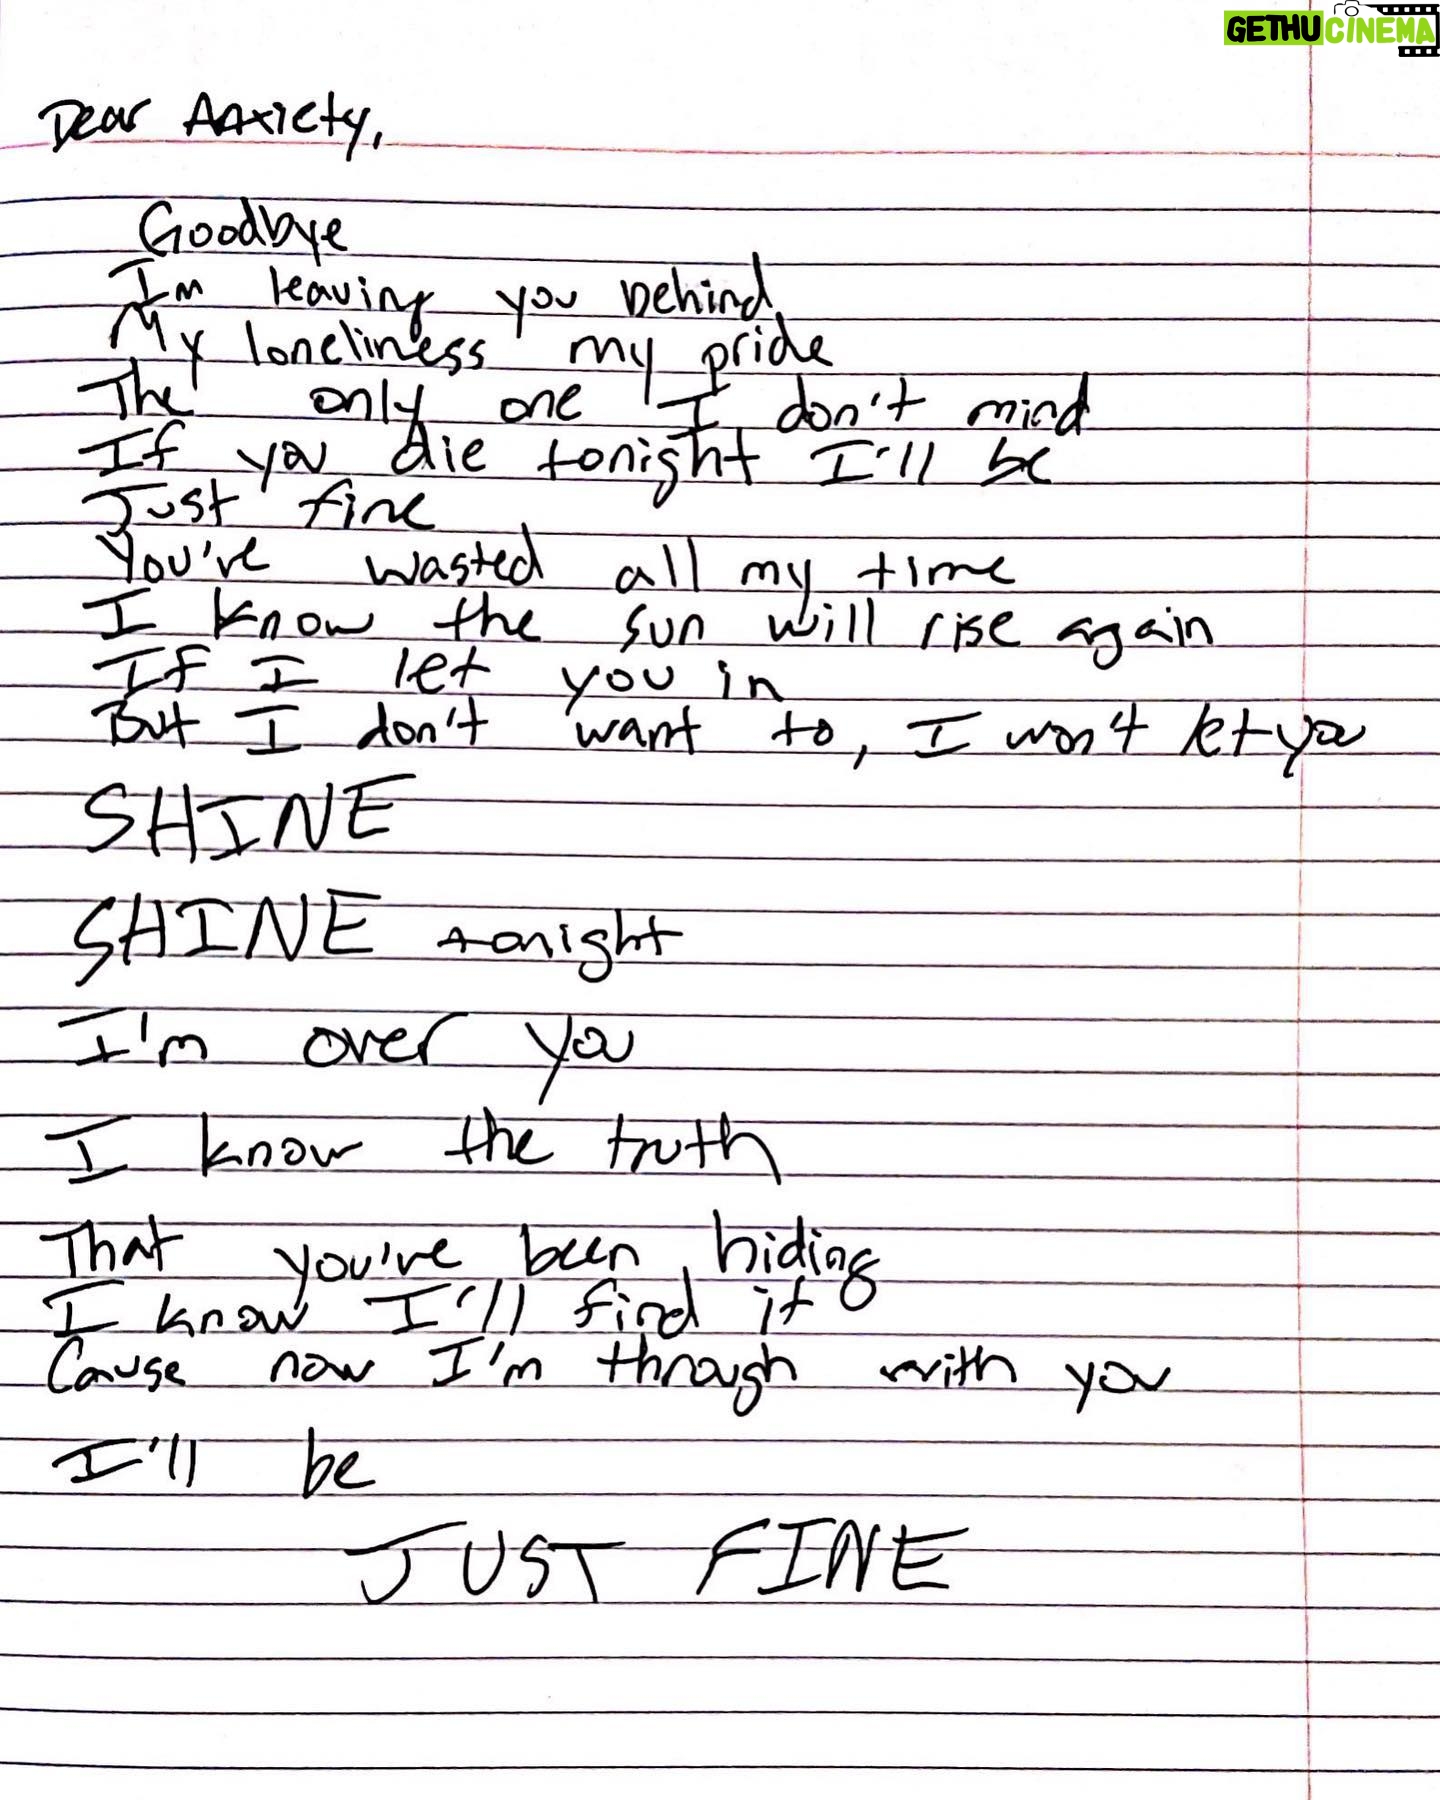 GETHUCINEMA
Dear Anxiety,
Goodbye
Im leaving you behind
My loneliness my pride
The only one I don't mind
If you die tonight I'll be
Just fine
You've wasted all my time
I know the sun will rise again
If I let you in
But I don't want to, I won't let you
SHINE
SHINE tonight
I'm over you
I know the truth
That you've been hiding
I know I'll find it
Cause now I'm through with you
I'll be
JUST FINE